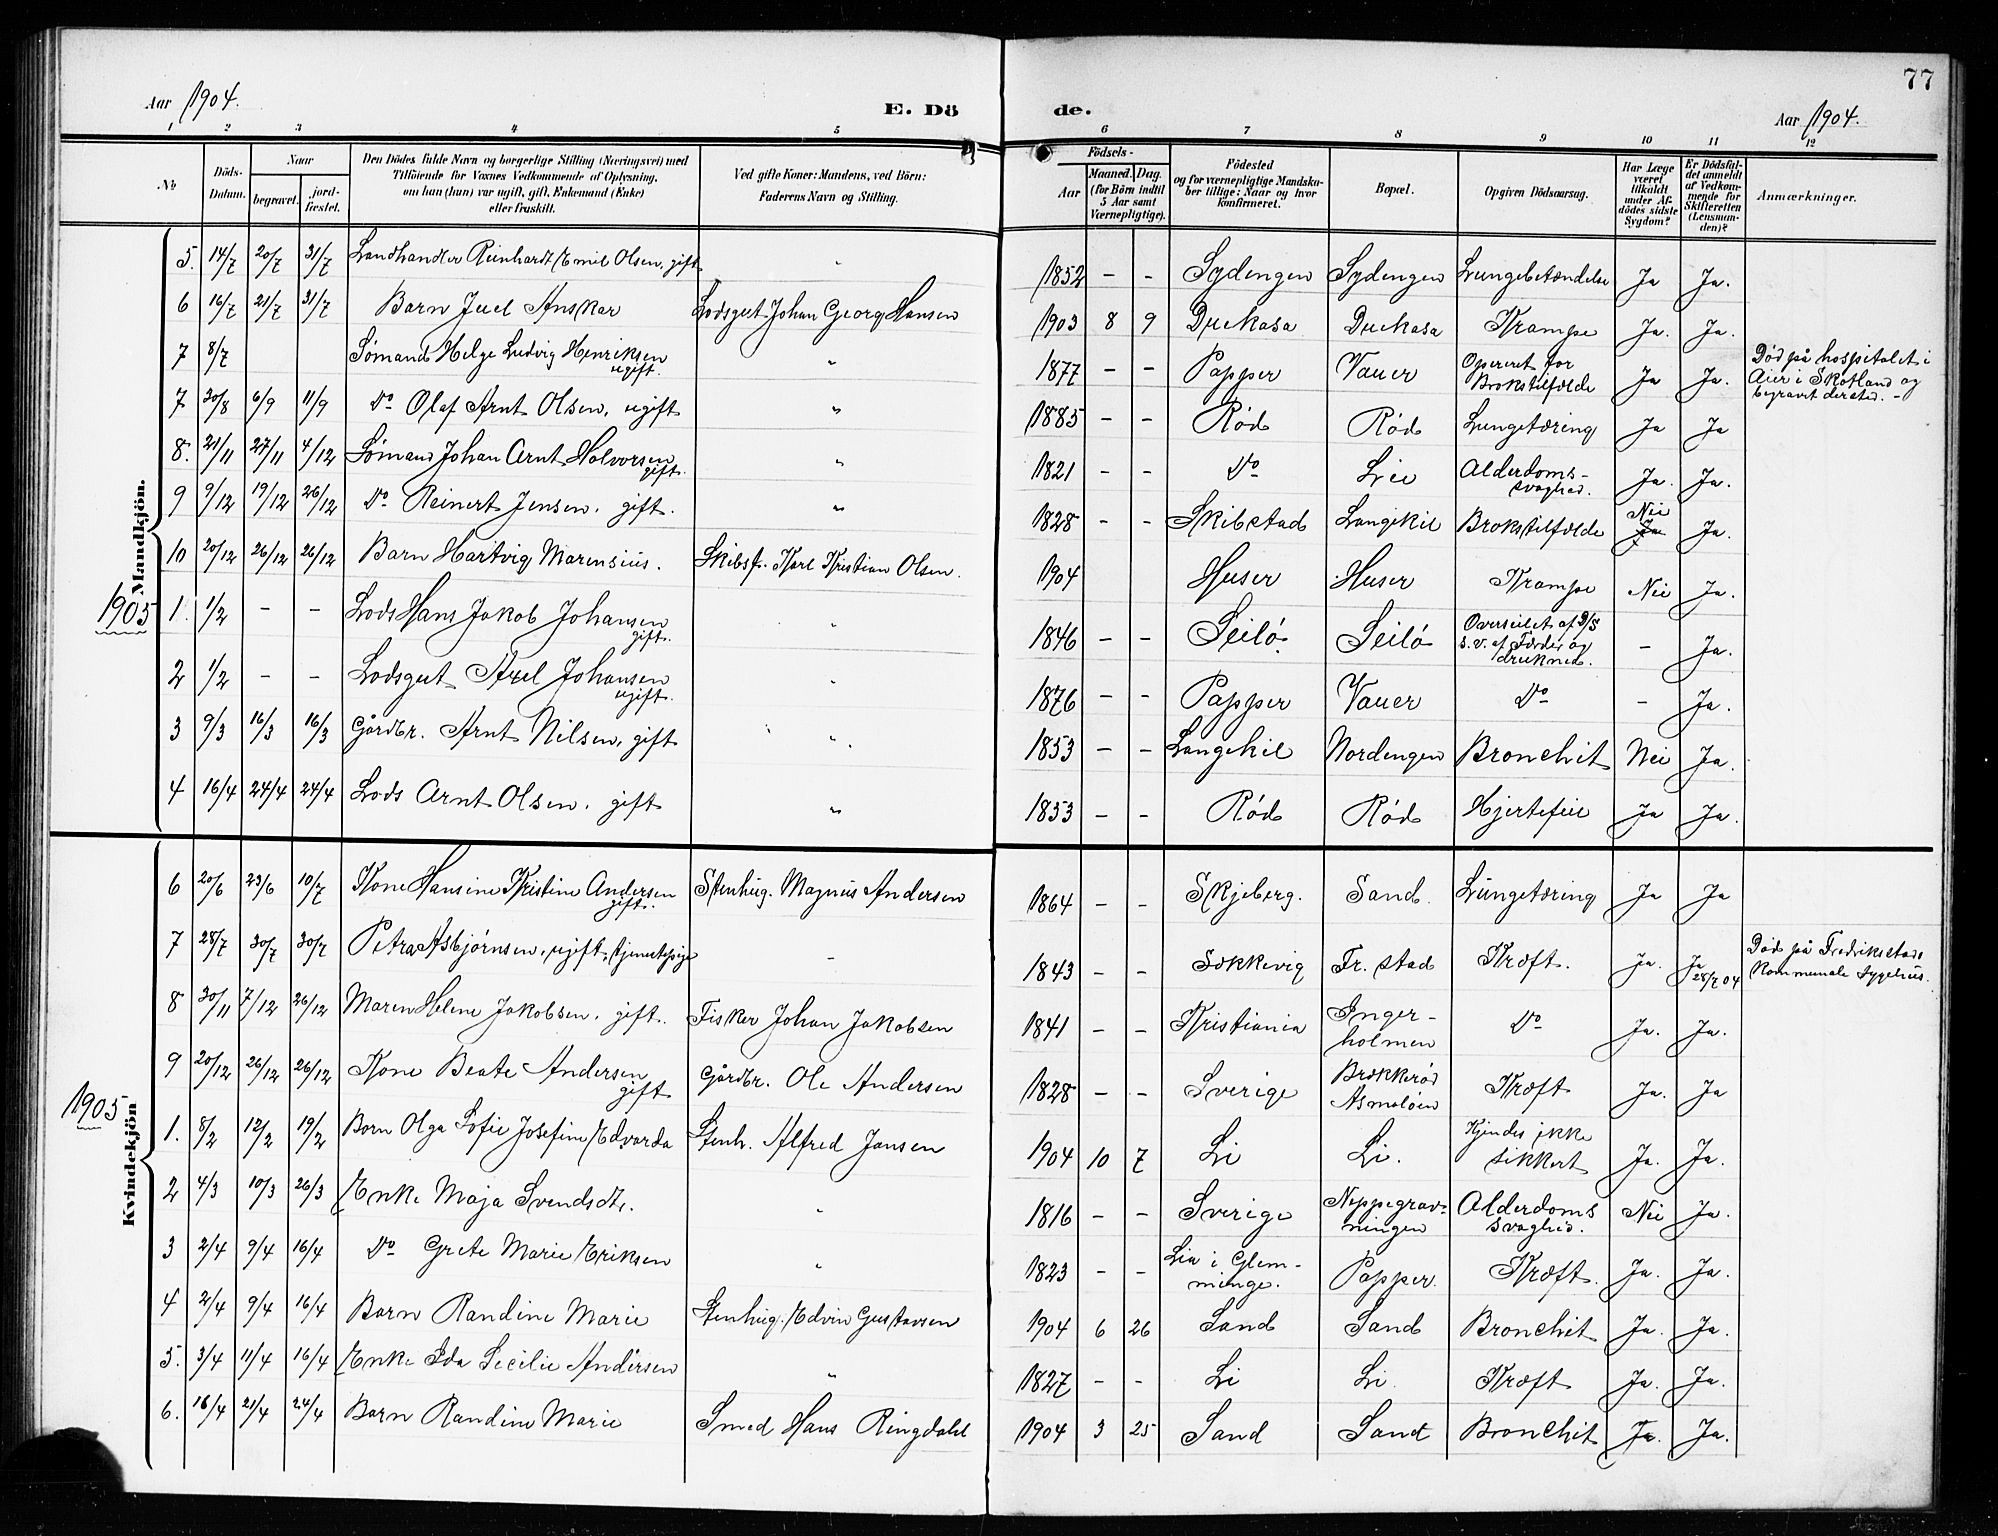 77
Aar 1904. E. Dö de. Aar 1904.
1 2 3 4 5 6 7 8 9 10 11 12
No Döds-Datum. Naar begravet. jord-fæstet. Den Dödes fulde Navn og borgerlige Stilling (Næringsvei) med Tilföiende for Voxnes Vedkommende af Oplysning, om han (hun) var ugift, gift, Enkemand (Enke) eller fraskilt. Ved gifte Koner: Mandens, ved Börn: Faderens Navn og Stilling. Födsels- Aar Maaned. Dag. (for Börn indtil 5 Aar samt Værnepligtige). Födested og for værnepligtige Mandska-ber tillige: Naar og hvor konfirmeret. Bopæl. Opgiven Dödsaarsag. Har Læge været tilkaldt under Af-dödes sidste Sygdom? Er Dödsfal-det anmeldt af Vedkom-mende for Skifteretten (Lensman-den)? Anmærkninger.
Mandkjön.
5. 14/7 20/7 31/7 Landhandler Reinhardt Emil Olsen, gift „ 1852 – – Sydengen Sydengen Lungebetændelse Ja Ja.
6 16/7 21/7 31/7 Barn Juel Anskar Lodsgut Johan Georg Hansen 1903 8 9 Duekasa Duekasa Krampe Ja. Ja.
7 8/7 Sømand Helge Ludvig Henriksen ugift. „ 1877 – – Papper Vauer Opereret for Brokstilfælde Ja Ja. Död på hospitalet i Aier i Skotland og begravet dersted. –
7 30/8 6/9 11/9 Do Olaf Arnt Olsen, ugift „ 1885 – – Rød Rød Lungetæring Ja Ja
8. 21/11 27/11 4/12 Sømand Johan Arnt Halvorsen gift. „ 1821 – – Do Lie Alderdoms-svaghed. Ja. Ja.
9 9/12 19/12 26/12 Do Reinert Jensen, gift. „ 1828 – – Skibstad Langekil Brokstilfælde Nei Ja Ja.
10 20/12 26/12 26/12 Barn Hartvig Marensius. Skibsf. Karl Kristian Olsen. 1904 Huser Huser Krampe Nei Ja.
1905
1. 1/2 – – Lods Hans Jakob Johansen gift. „ 1846 – – Seilö. Seilö Overseilet af D/S s.v. af Færder og druknede. – Ja.
2 1/2 – – Lodsgut Axel Johansen ugift. „ 1876 – – Papper Vauer Do – Ja.
3 9/3 16/3 16/3 Gårdbr. Arnt Nilsen, gift „ 1853 – – Langekil Nordengen Bronchit Nei Ja.
4 16/4 24/4 24/4 Lods Arnt Olsen, gift „ 1853 – – Rød Rød Hjertefeil Ja Ja.
Kvindekjön
6 20/6 23/6 10/7 Kone Hansine Kristine Andersen gift. Stenhug. Magnus Andersen 1864 – – Skjeberg. Sand. Lungetæring Ja Ja
7 28/7 30/7 30/7 Petra Asbjørnsen, ugift, tjenestepige – 1843 – – Søkkevig Fr. stad Kræft. Ja. Ja 28/7 04 Död på Fredriksstads Kommunale Sygehus.
8 30/11 7/12 26/12 Maren Helene Jakobsen, gift. Fisker Johan Jakobsen 1841 – – Kristiania Inger-holmen Do Ja. Ja.
9 20/12 26/12 26/12 Kone Beate Andersen gift Gårdbr. Ole Andersen 1828 – – Sverige Brækkerød Asmaløen Kræft Ja. Ja
1905
1. 8/2 12/2 19/2 Barn Olga Sofie Josefine Edvarda Stenh. Alfred Jansen 1904 10 7 Li Li. Kjendes ikke sikkert Ja. Ja.
2 4/3 10/3 26/3 Enke Maja Svendsdt. „ 1816 – – Sverige Neppegrav-ningen Alderdoms svaghed. Nei Ja.
3 2/4 9/4 16/4 Do Grete Marie Eriksen „ 1823 – – Lia i Glem-minge. Papper. Kræft. Ja. Ja.
4 2/4 9/4 16/4 Barn Randine Marie Stenhug. Edvin Gustavsen 1904 6 26 Sand Sand Bronchit Ja. Ja.
5. 3/4 11/4 16/4 Enke Ida Cecilie Andersen „ 1827 – – Li Li Kræft Ja. Ja.
6. 16/4 21/4 24/4 Barn Randine Marie Smed Hans Ringdahl 1904 3 25 Sand Sand Bronchit Ja. Ja.